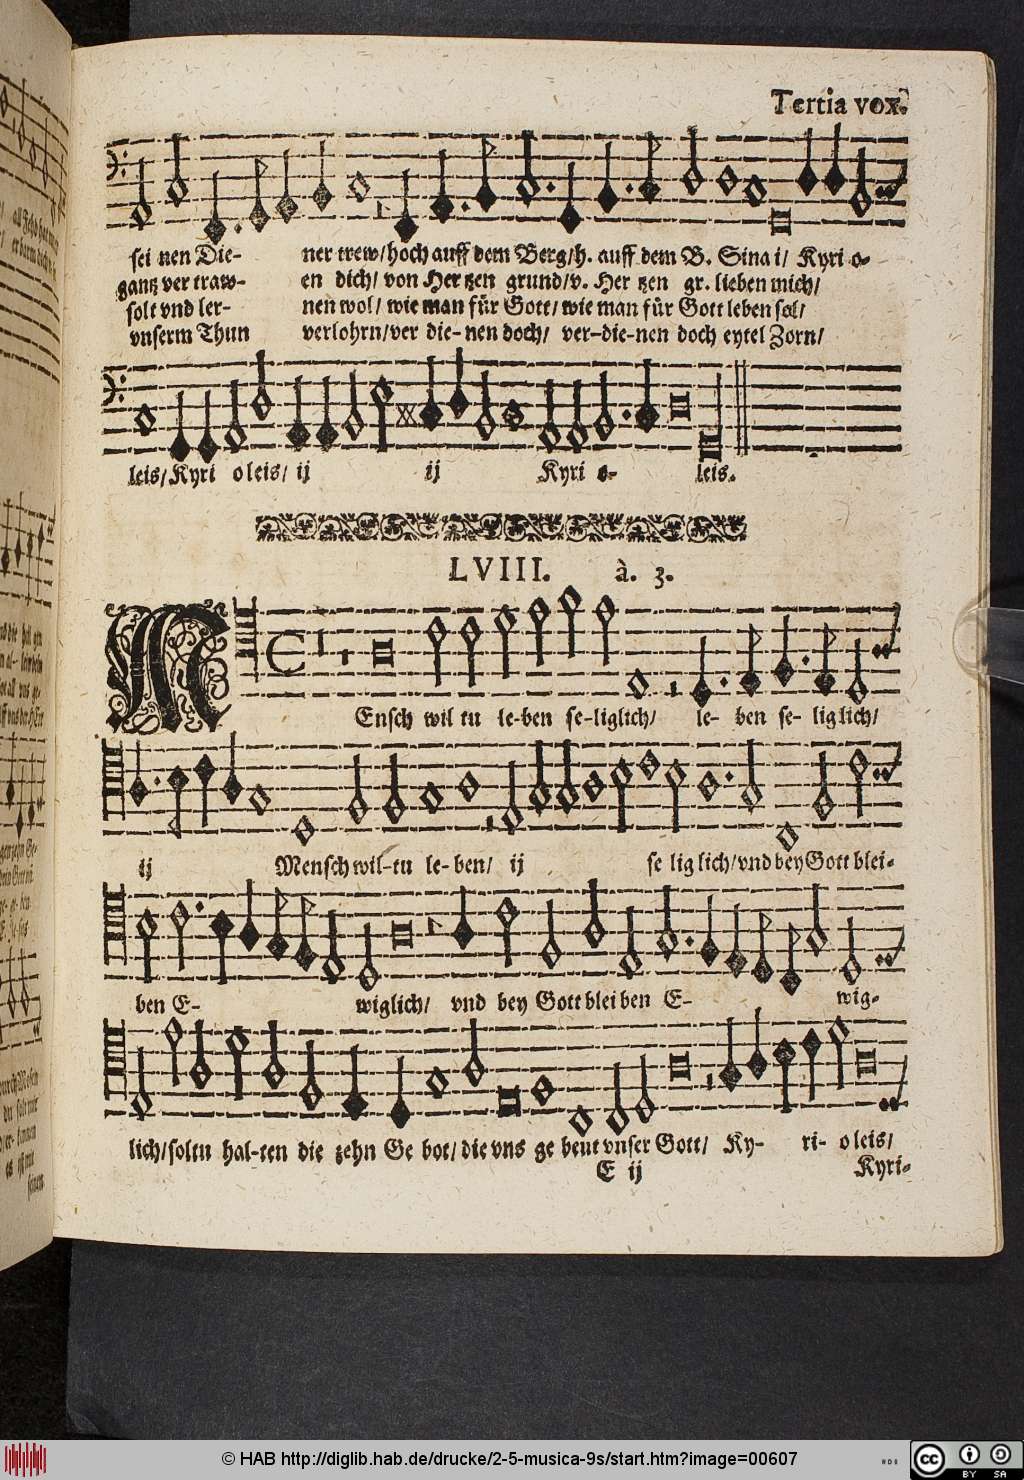 Tertia vox.
sei nen Die- ner trew/ hoch auff dem Berg/ h. auff dem B. Sina i/ Kyri o-
gantz ver traw- en dich/ von Her tzen grund/ v. Her tzen gr. lieben mich/
solt vnd ler- nen wol/ wie man für Gott/ wie man für Gott leben sol/
vnserm Thun verlohrn/ ver die-nen doch/ ver-die-nen doch eytel Zorn/
leis/ Kyri o leis/ ij ij Kyri e- leis.
LVIII. à. 3.
MEnsch wil tu le-ben se-liglich/ le- ben se- lig lich/
ij Mensch wil-tu le-ben/ ij se lig lich/ vnd bey Gott blei-
ben E- wiglich/ vnd bey Gott blei ben E- wig-
lich/ soltu hal-ten die zehn Ge bot/ die vns ge beut vnser Gott/ Ky- ri- o leis/
E ij Kyri-
© HAB http://diglib.hab.de/drucke/2-5-musica-9s/start.htm?image=00607
cc BY SA